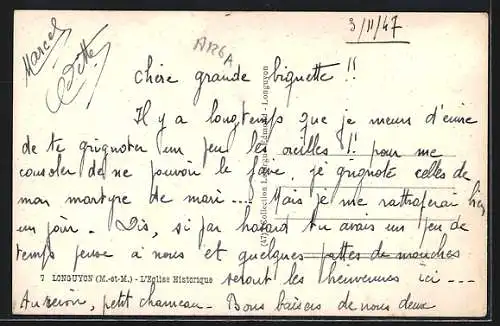 3/11/47
Marcel
Odette
A126A
Chère grande biquette !!
Il y a longtemps que je meurs d'envie
de te grignoter un peu les oreilles !! pour me
consoler de ne pouvoir le faire, j'ai grignoté celles de
mon martyre de mari .... Mais je me rattraferai bien
un jour. Dis, si par hasard tu avais un peu de
temps pense à nous et quelques pattes de mouches
seront les bienvenues ici ---
Au revoir, petit chameau - Bons baisers de nous deux
7 LONGUYON (M.-et-M.) - L'Eglise Historique
(47) Collection Longuyon